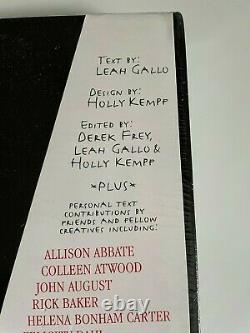 TEXT BY:
LEAH GALLO
DESIGN BY:
HOLLY KEMPF
EDITED BY:
DEREK FREY,
LEAH GALLO &
HOLLY KEMPF
*PLUS*
PERSONAL TEXT
CONTRIBUTIONS BY
FRIENDS AND FELLOW
CREATIVES INCLUDING:
ALLISON ABBATE
COLLEEN ATWOOD
JOHN AUGUST
RICK BAKER
HELENA BONHAM CARTER
worthpoint.com